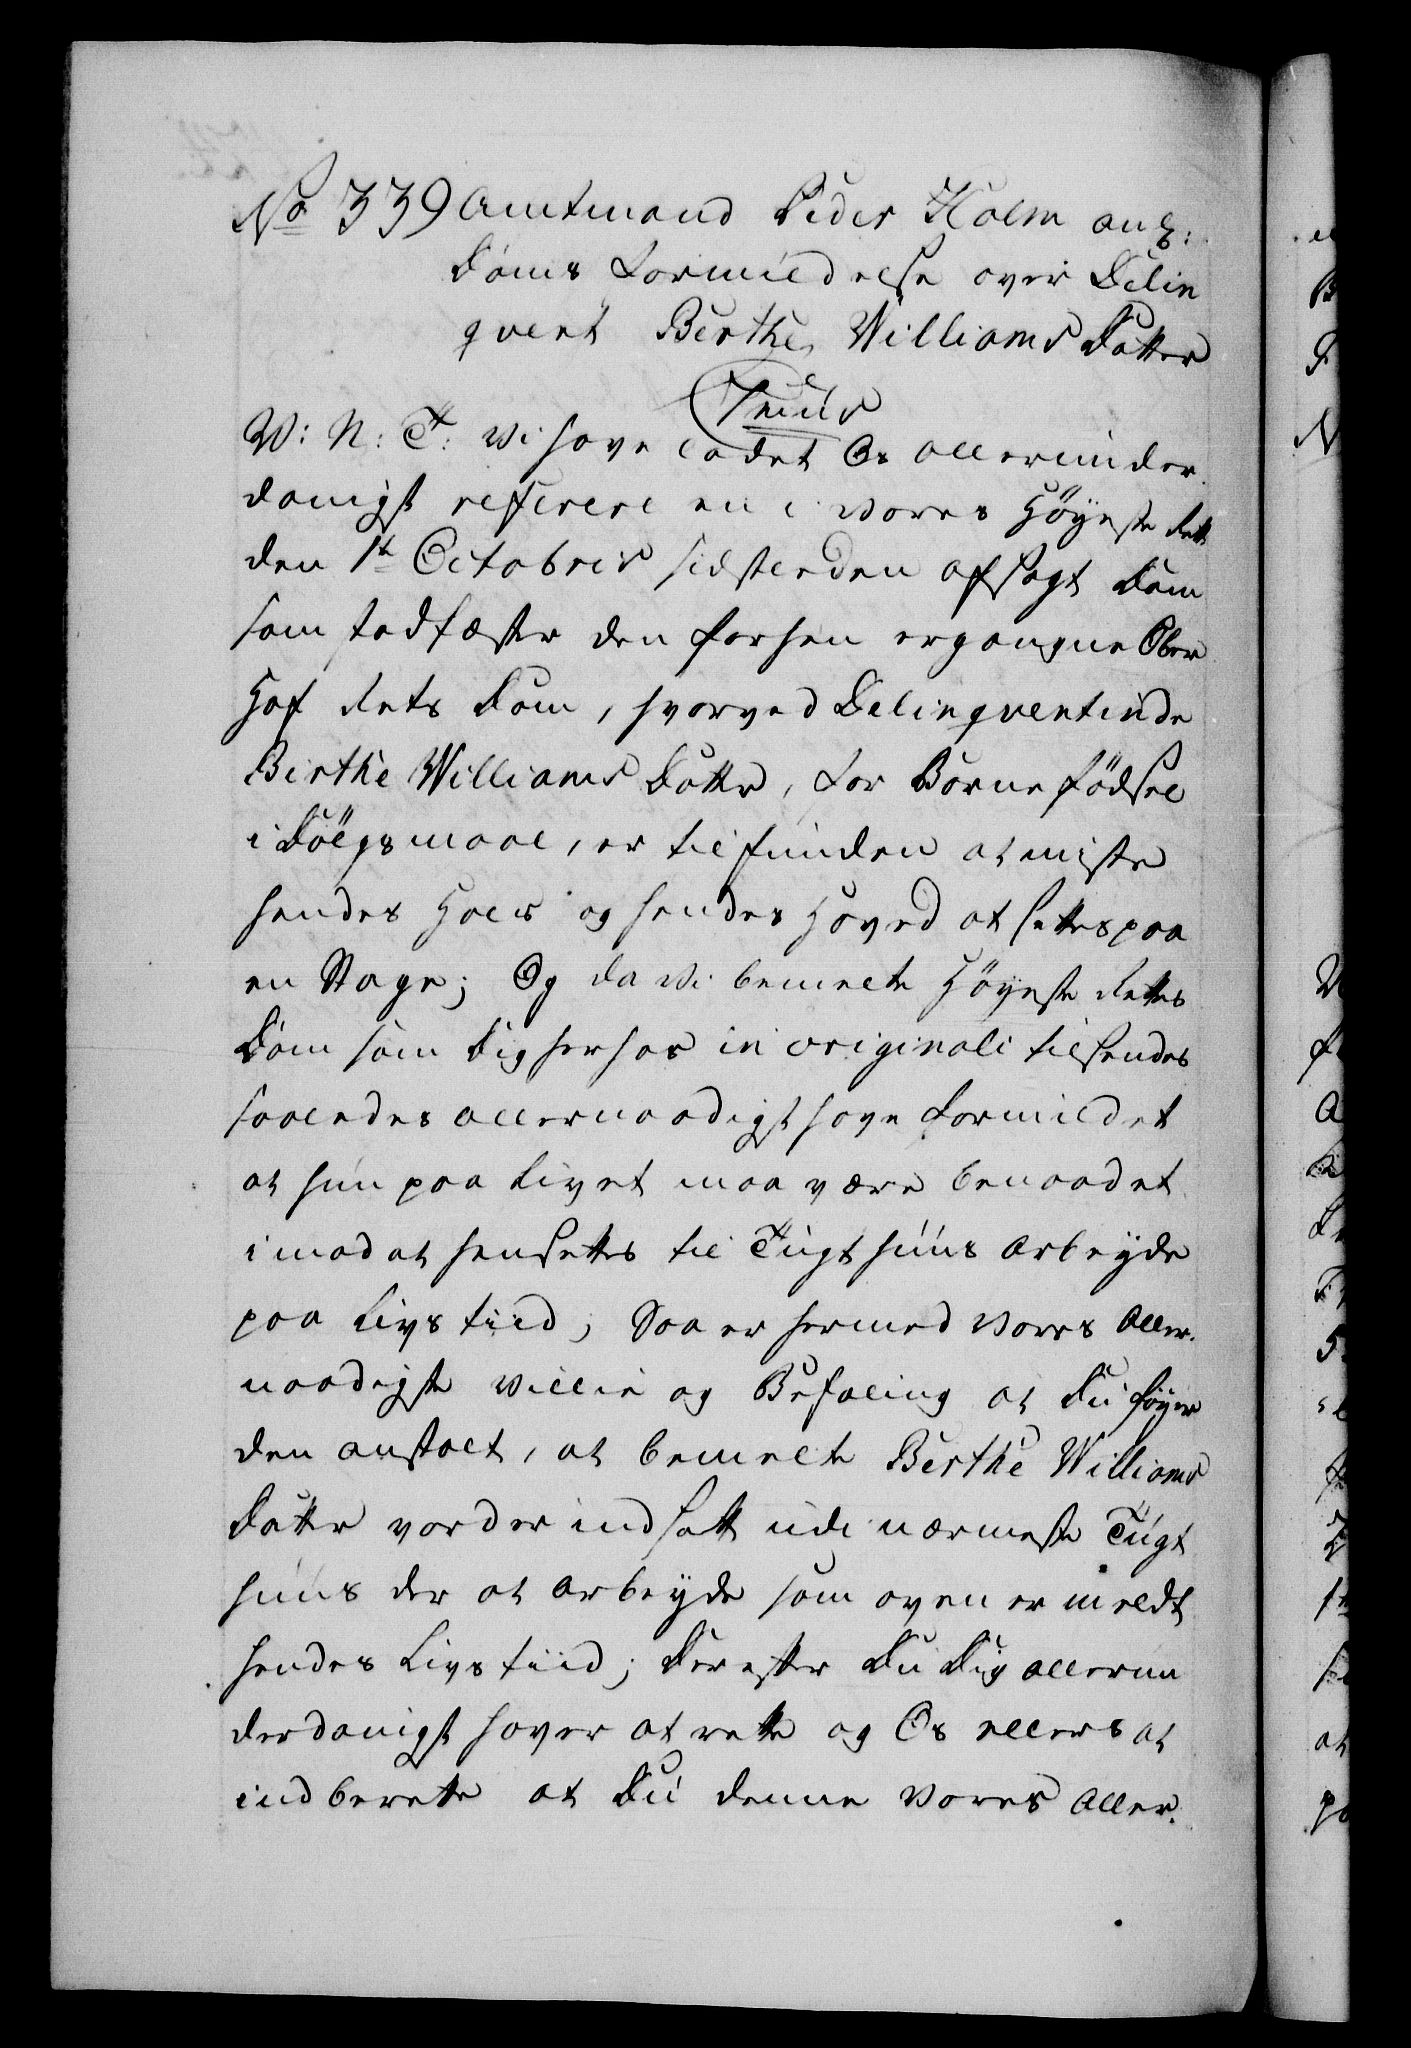 No 339 Amtmand Peder Holm ang:
Doms Formildelse over Delin
qvent Berthe Williams Datter
V: N: T: Vi have ladet Os allerunder
danigst referere en i vores Høyeste Rett
den 1te Octobris sidstleden afsagt Dom
som stadfæster den forhen ergangne Ober
Hof Rets Dom, hvorved Delinqventinde
Birthe Williams Datter, for Barne fødsel
i Dølgsmaal, er tilfunden at miste
hendes Hals og hendes Hoved at settes paa
en Stage; Og da Vi bemelte Høyeste Rettes
Dom som Dig herhos in originali tilsendes
saaledes allernaadigst have formildet
at hun paa Livet maa være benaadet
imod at hensettes til Tugthuus Arbeyde
paa Livs tiid, Saa er hermed Vores Aller-
naadigste Villie og Befaling at Du føyer
den anstalt, at bemelte Berthe Williams
Datter vorder indsatt udi nærmeste Tugt
huus der at arbeyde som oven er meldt
hendes Livs tiid; Derefter Du Dig allerun
derdanigst haver at rette og Os ellers at
indberette at Du denne Vores Aller-